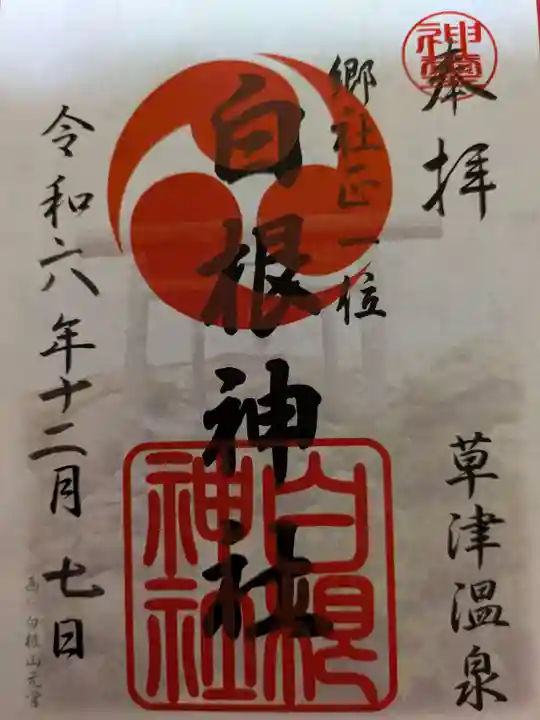 奉拝
草津温泉
郷社正一位
白根神社
令和六年十二月七日
白根
神社